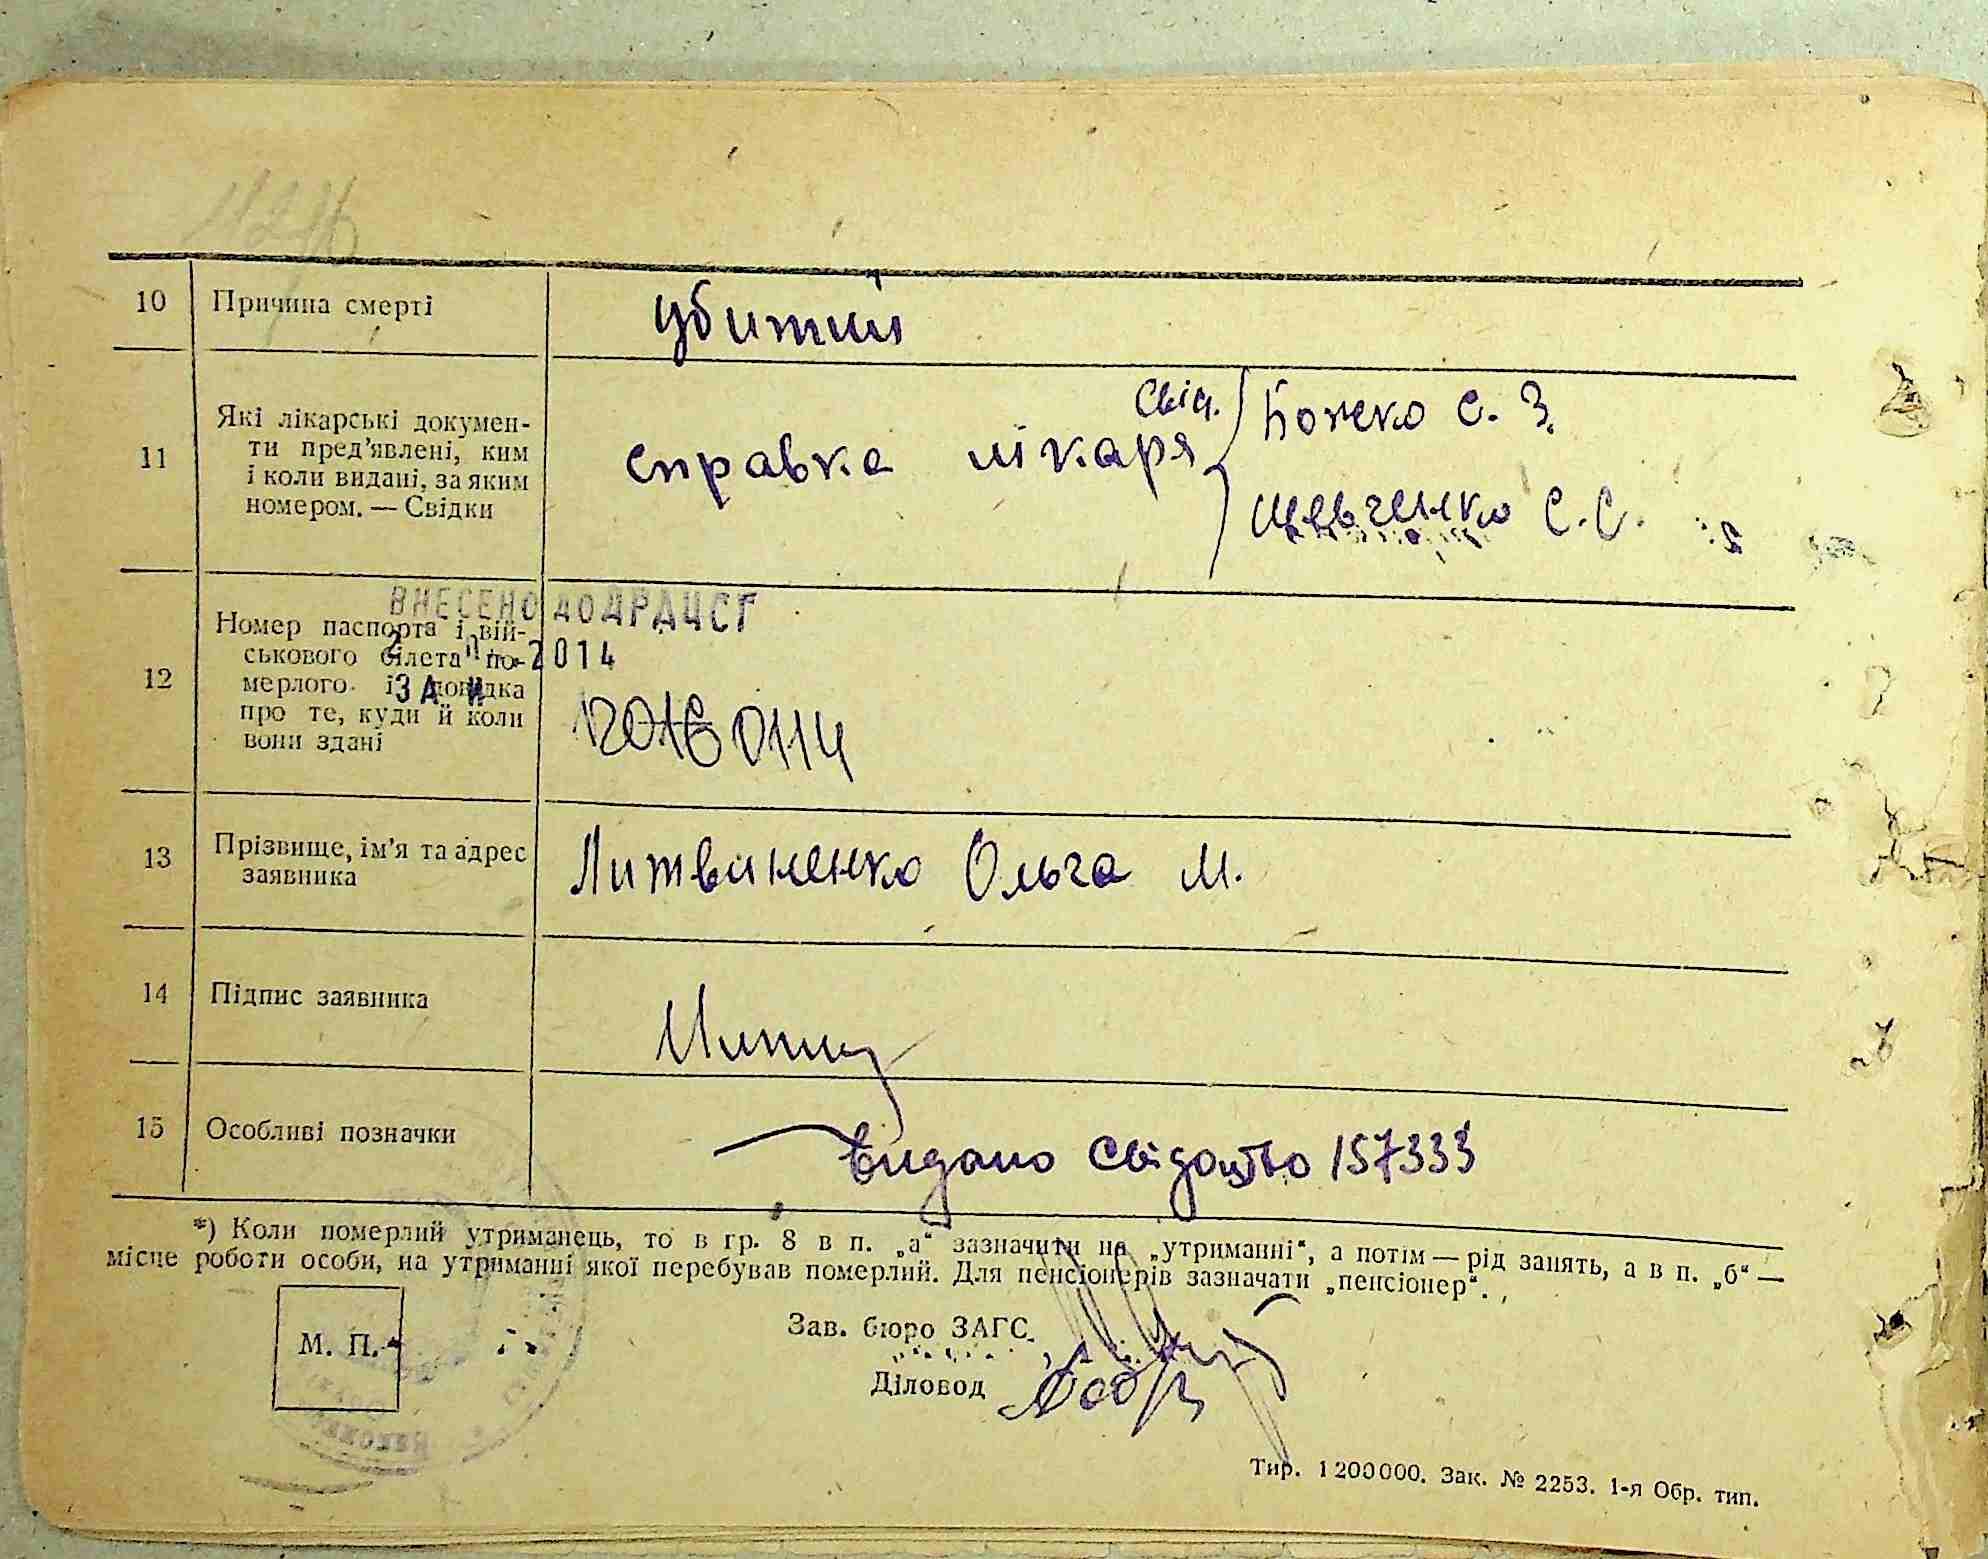 10 Причина смерті убитий
11 Які лікарські докумен-
ти пред'явлені, ким
і коли видані, за яким
номером. — Свідки
справка лікаря
Свід. Божко С. З.
Шевченко С. С.
ВНЕСЕНО ДО ДРАЦСГ
2014
ЗА №
12 Номер паспорта і вій-
ськового білета по-
мерлого і довідка
про те, куди й коли
вони здані
0114
13 Прізвище, ім'я та адрес
заявника
Литвиненко Ольга М.
14 Підпис заявника
15 Особливі позначки
Видано свідоцтво 157333
*) Коли померлий утриманець, то в гр. 8 в п. „а“ зазначити на „утриманні“, а потім — рід занять, а в п. „б“ —
місце роботи особи, на утриманні якої перебував померлий. Для пенсіонерів зазначати „пенсіонер“.
М. П.
Зав. бюро ЗАГС
Діловод
Тир. 1200000. Зак. № 2253. 1-я Обр. тип.